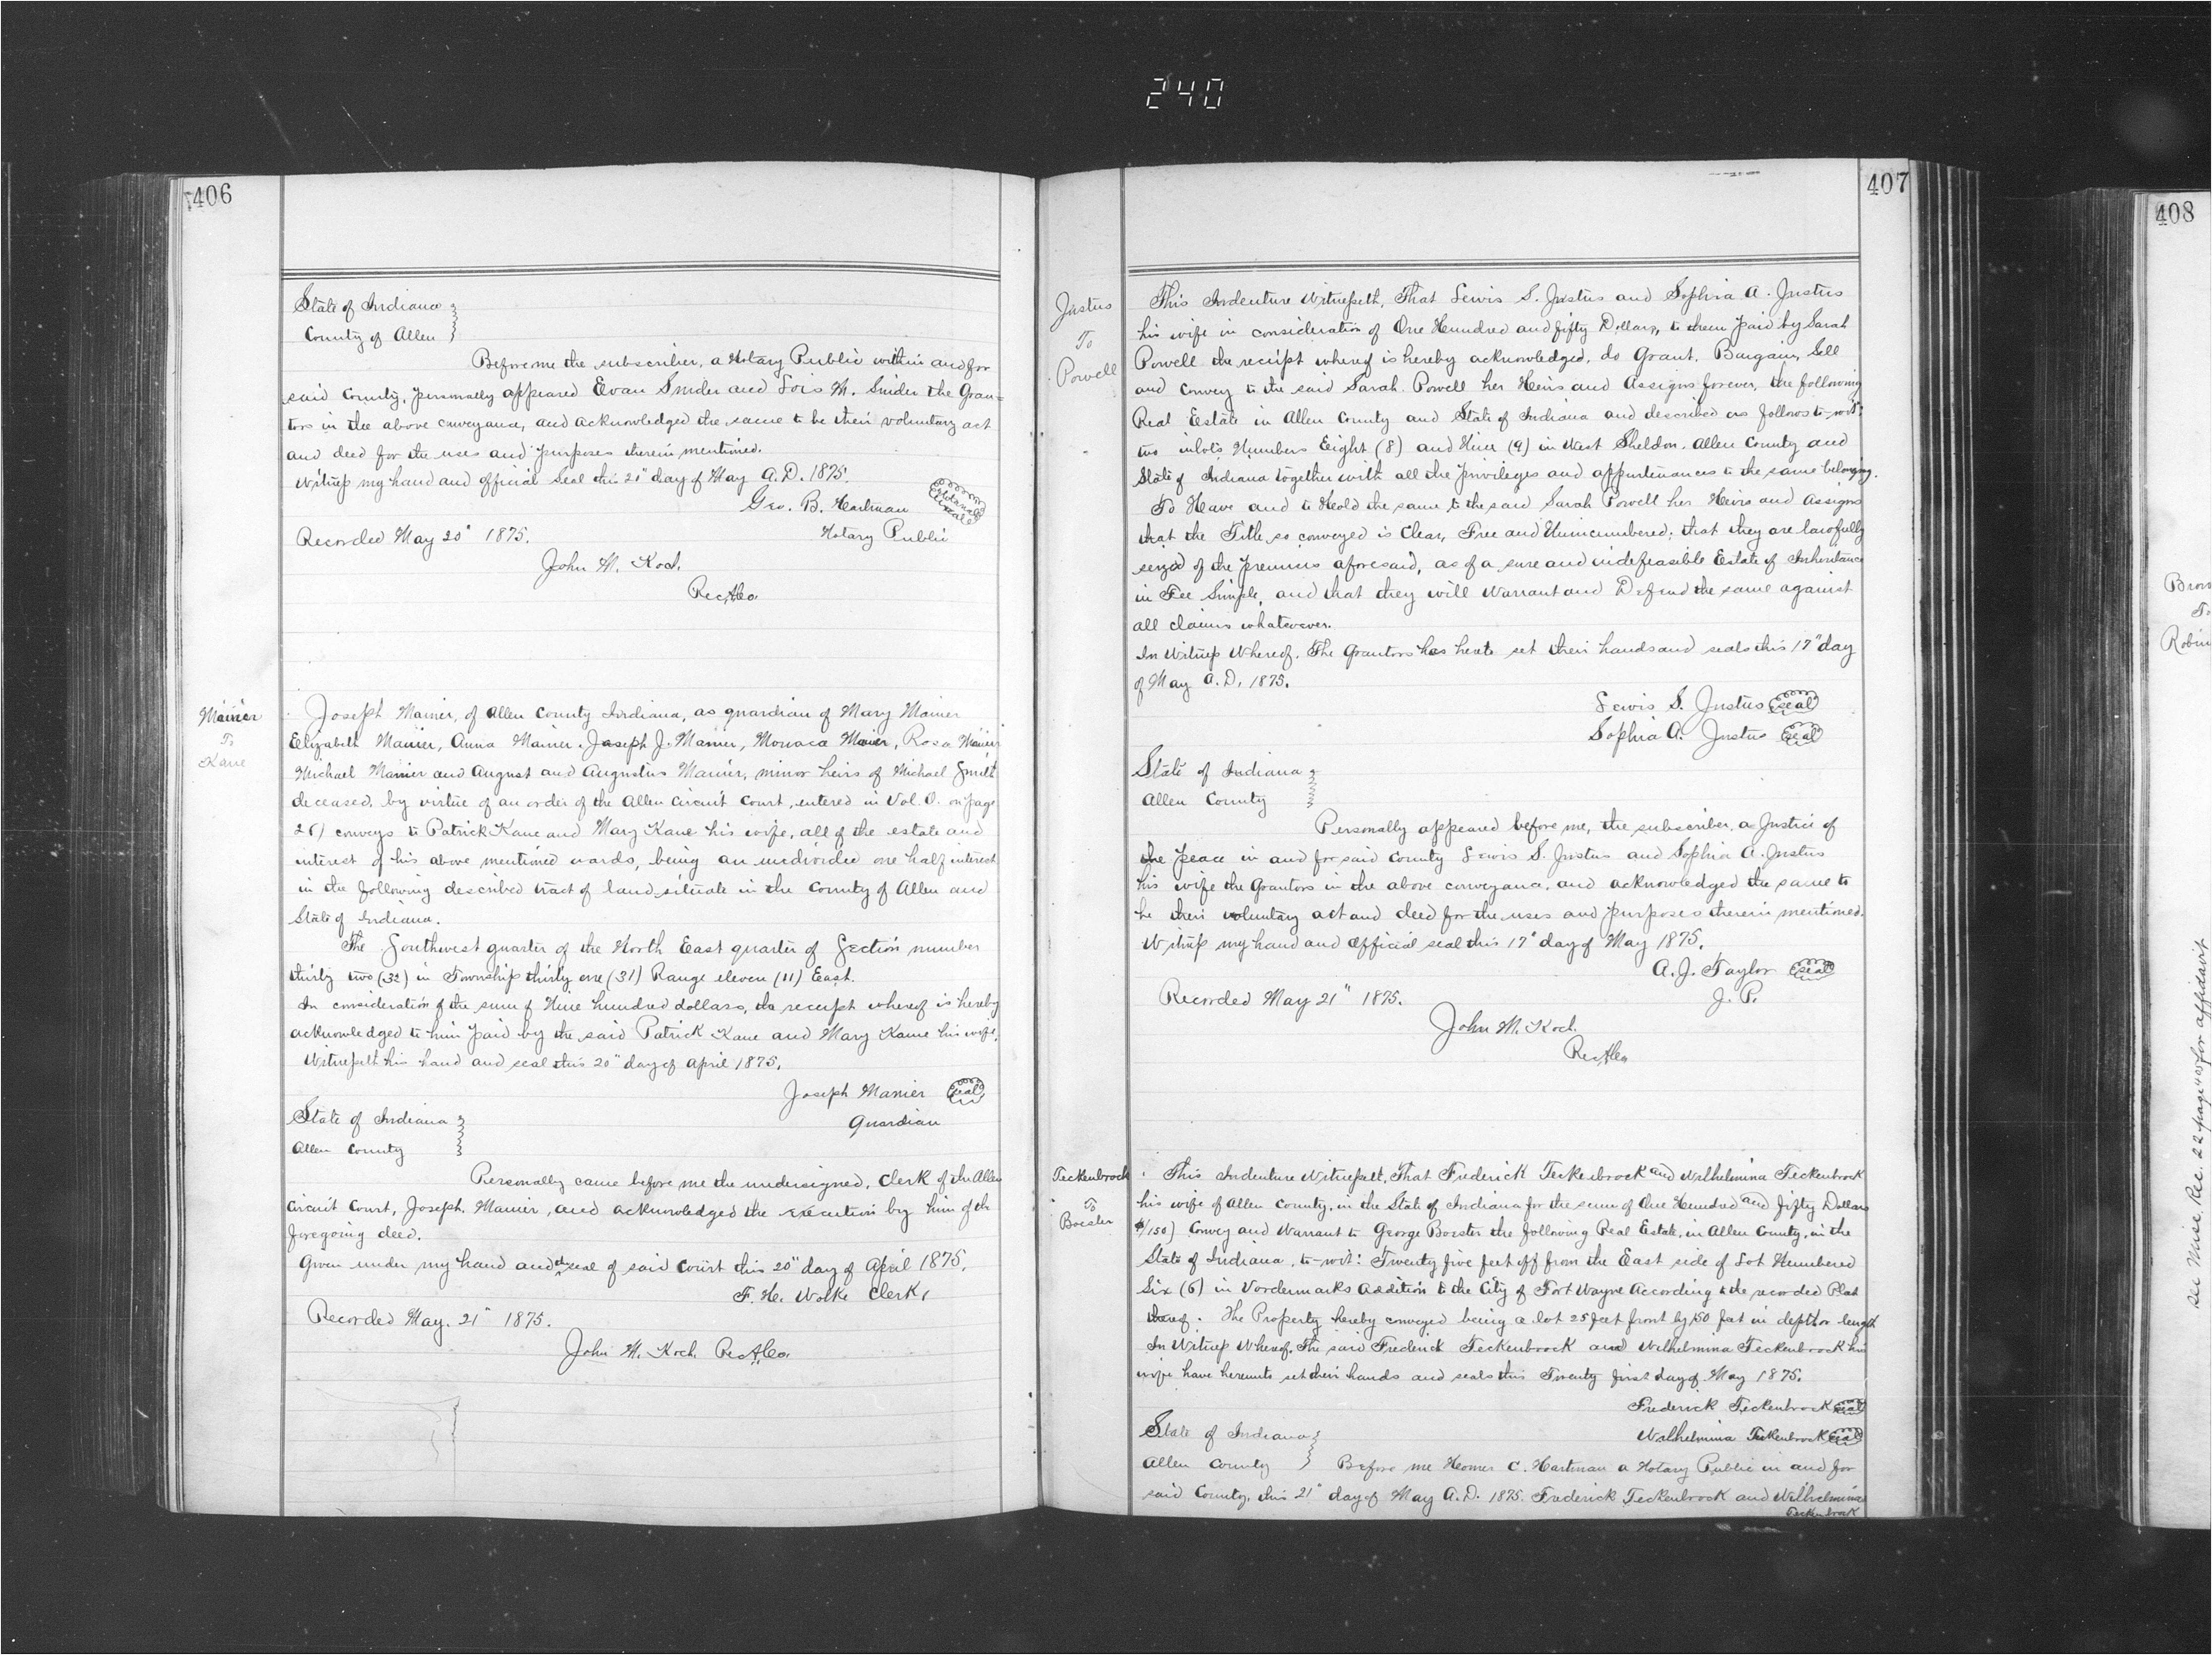 240
406
State of Indiana
County of Allen
Before me the subscriber, a Notary Public within and for
said County, personally appeared Evan Snider and Lois M. Snider the Gran=
tors in the above conveyance, and acknowledged the same to be their voluntary act
and deed for the uses and purposes therein mentioned.
Witness my hand and official seal this 21" day of May A.D. 1875.
Geo. B. Hartman
Notarial
Seal
Notary Public
Recorded May 20" 1875.
John M. Koch.
Rec A Co
Manier
To
Kane
Joseph Manier, of Allen County Indiana, as guardian of Mary Manier
Elizabeth Manier, Anna Manier, Joseph J. Manier, Monaca Manier, Rosa Manier
Michael Manier and August and Augustus Manier, minor heirs of Michael Smith
deceased, by virtue of an order of the Allen Circuit Court, entered in Vol. O. on page
conveys to Patrick Kane and Mary Kane his wife, all of the estate and
interest of his above mentioned wards, being an undivided one half interest
in the following described tract of land situate in the County of Allen and
State of Indiana.
The Southwest quarter of the North East quarter of Section number
thirty two (32) in Township thirty one (31) Range eleven (11) East.
In consideration of the sum of Nine hundred dollars, the receipt whereof is hereby
acknowledged to him paid by the said Patrick Kane and Mary Kane his wife.
Witnesseth his hand and seal this 20" day of April 1875.
Joseph Manier Seal
Guardian
State of Indiana
Allen County
Personally came before me the undersigned, Clerk of the Allen
Circuit Court, Joseph Manier, and acknowledged the execution by him of the
foregoing deed.
Given under my hand and the seal of said Court this 20" day of April 1875.
F. H. Wolke Clerk,
Recorded May. 21" 1875.
John M. Koch Rec A Co.
407
Justus
To
Powell
This Indenture Witnesseth, That Lewis S. Justus and Sophia A. Justus
his wife in consideration of One Hundred and fifty Dollars, to them paid by Sarah
Powell the receipt whereof is hereby acknowledged, do Grant, Bargain, Sell
and Convey to the said Sarah Powell her Heirs and Assigns forever, the following
Real Estate in Allen County and State of Indiana and described as follows to-wit:
two inlots Numbers Eight (8) and Nine (9) in West Sheldon. Allen County and
State of Indiana together with all the privileges and appurtenances to the same belonging.
To Have and to Hold the same to the said Sarah Powell her Heirs and Assigns
that the Title so conveyed is Clear, Free and Unincumbered; that they are lawfully
seized of the premises aforesaid, as of a sure and indefeasible Estate of Inheritance
in Fee Simple, and that they will Warrant and Defend the same against
all claims whatever.
In Witness Whereof. The Grantors has hereto set their hands and seals this 17" day
of May A.D. 1875.
Lewis S. Justus Seal
Sophia A. Justus Seal
State of Indiana
Allen County
Personally appeared before me, the subscriber, a Justice of
the peace in and for said County Lewis S. Justus and Sophia A. Justus
his wife the Grantors in the above conveyance, and acknowledged the same to
be their voluntary act and deed for the uses and purposes therein mentioned.
Witness my hand and official seal this 17" day of May 1875.
A. J. Taylor Seal
J. P.
Recorded May 21" 1875.
John M. Koch.
Rec A Co
Teckenbrock
To
Boester
This Indenture Witnesseth, That Frederick Teckenbrock and Wilhelmina Teckenbrock
his wife of Allen County, in the State of Indiana for the sum of One Hundred and fifty Dollars
$150) Convey and Warrant to George Boester the following Real Estate, in Allen County, in the
State of Indiana, to-wit: Twenty five feet off from the East side of Lot Numbered
Six (6) in Vordermarks Addition to the City of Fort Wayne According to the recorded Plat
thereof. The Property hereby conveyed being a lot 25 feet front by 150 feet in depth or length
In Witness Whereof, The said Frederick Teckenbrock and Wilhelmina Teckenbrock his
wife have hereunto set their hands and seals this Twenty first day of May 1875.
Frederick Teckenbrock Seal
Wilhelmina Teckenbrock Seal
State of Indiana
Allen County Before me Homer C. Hartman a Notary Public in and for
said County, this 21" day of May A.D. 1875. Frederick Teckenbrock and Wilhelmina
Teckenbrock
408
Brow
To
Robin
See Misc Rec. 22 page for affidavit